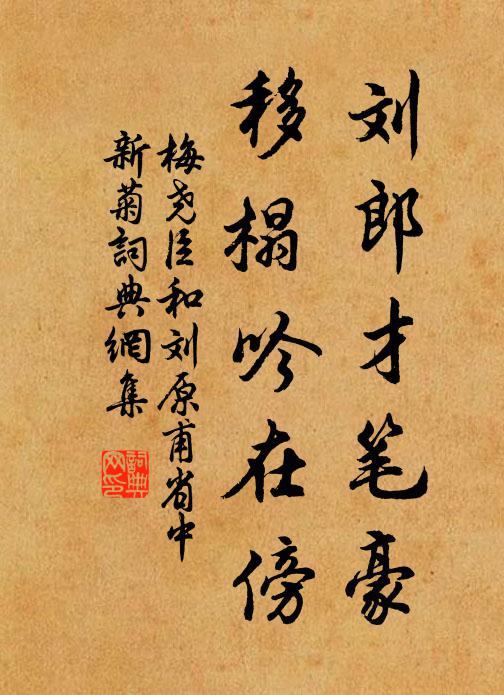 刘郎才笔豪
移榻吟在傍
梅尧臣和刘原甫省中
新菊詞典網集
詞典网印